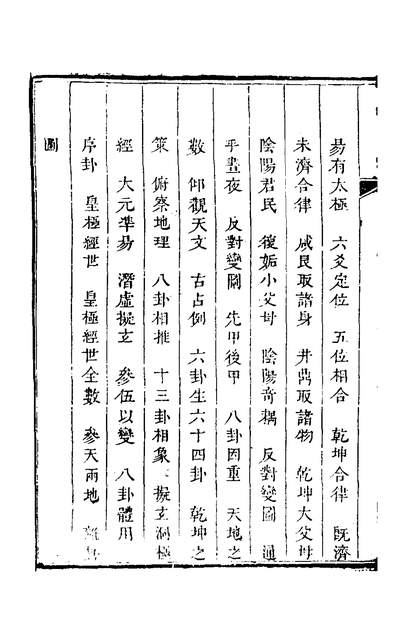 易有太極　六爻定位　五位相合　乾坤合律　旣濟
未濟合律　咸艮取諸身　井鼎取諸物　乾坤大父母
陰陽君民　復姤小父母　陰陽奇耦　反對變圖　通
乎晝夜　反對變圖　先甲後甲　八卦因重　天地之
數　仰觀天文　古占例　六卦生六十四卦　乾坤之
策　俯察地理　八卦相推　十三卦相象　擬玄洞極
經　大元準易　潛虛擬玄　參伍以變　八卦體用
序卦　皇極經世　皇極經世全數　參天兩地
圖